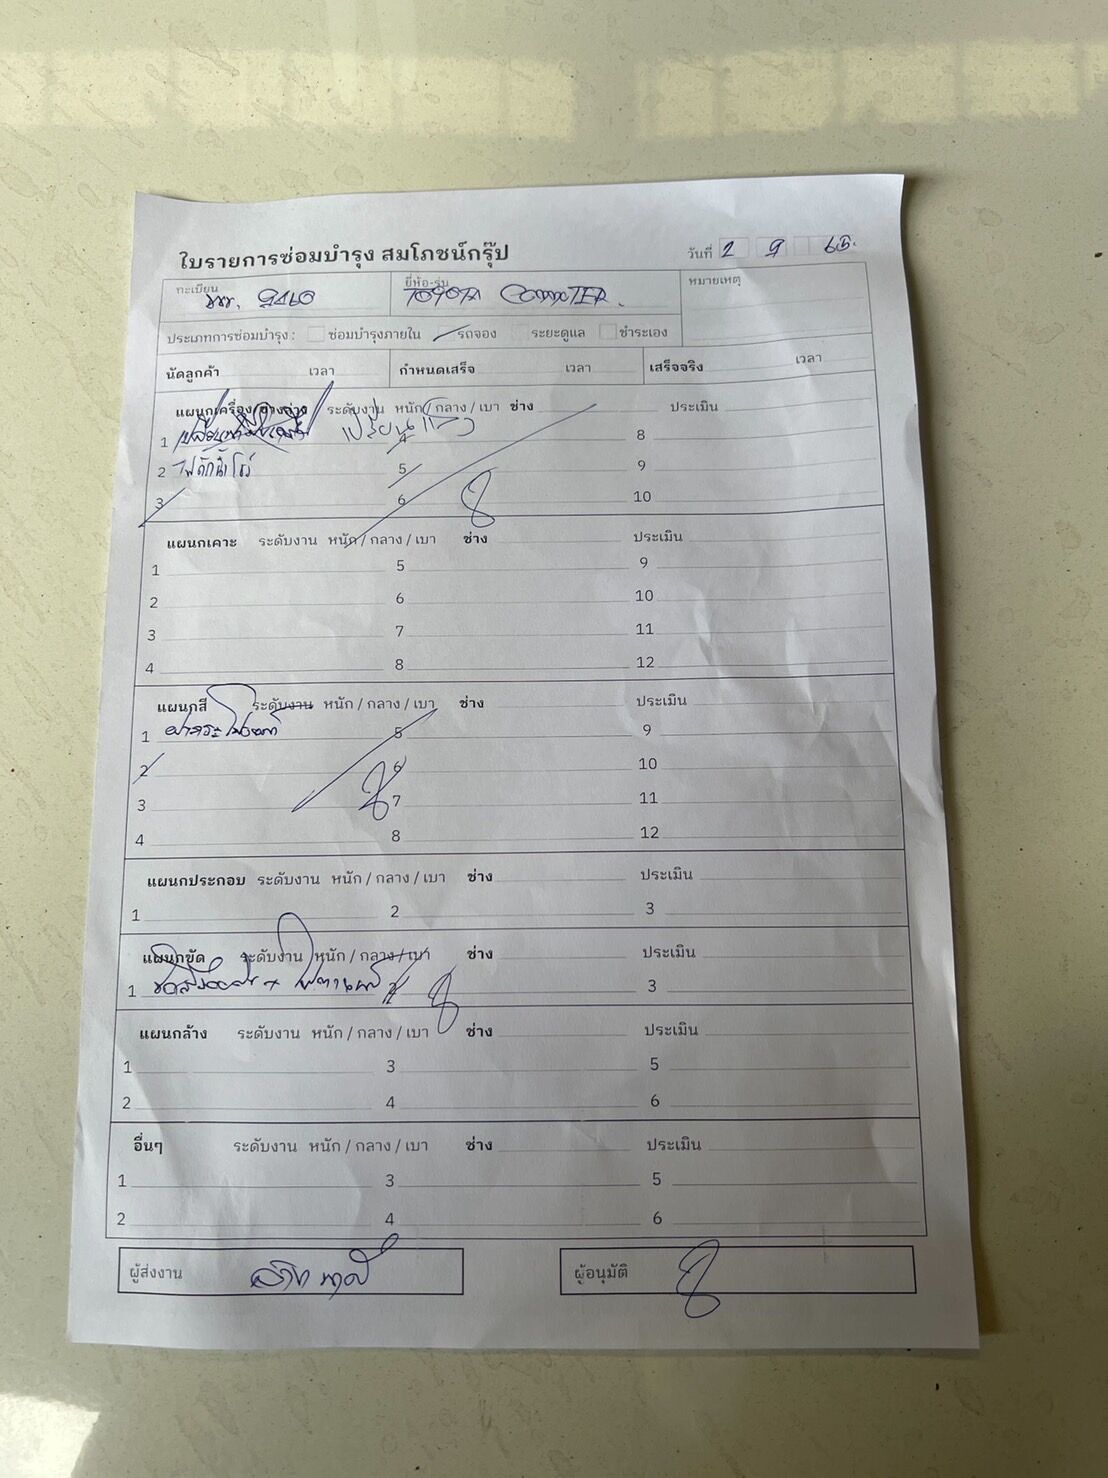 ใบรายการซ่อมบำรุง สมโภชน์กรุ๊ป
วันที่ 2 9 65.
ทะเบียน ยี่ห้อ-รุ่น TOYOTA COMMUTER. หมายเหตุ
ประเภทการซ่อมบำรุง : ซ่อมบำรุงภายใน รถจอง ระยะดูแล ชำระเอง
นัดลูกค้า เวลา กำหนดเสร็จ เวลา เสร็จจริง เวลา
แผนกเครื่อง/ช่วงล่าง ระดับงาน หนัก / กลาง / เบา ช่าง ประเมิน
1 เปลี่ยนแล้ว 4 8
2 5 9
3 6 10
แผนกเคาะ ระดับงาน หนัก / กลาง / เบา ช่าง ประเมิน
1 5 9
2 6 10
3 7 11
4 8 12
แผนกสี ระดับงาน หนัก / กลาง / เบา ช่าง ประเมิน
1 ฝากระโปรง 5 9
2 6 10
3 7 11
4 8 12
แผนกประกอบ ระดับงาน หนัก / กลาง / เบา ช่าง ประเมิน
1 2 3
แผนกขัด ระดับงาน หนัก / กลาง / เบา ช่าง ประเมิน
1 3
แผนกล้าง ระดับงาน หนัก / กลาง / เบา ช่าง ประเมิน
1 3 5
2 4 6
อื่นๆ ระดับงาน หนัก / กลาง / เบา ช่าง ประเมิน
1 3 5
2 4 6
ผู้ส่งงาน ผู้อนุมัติ